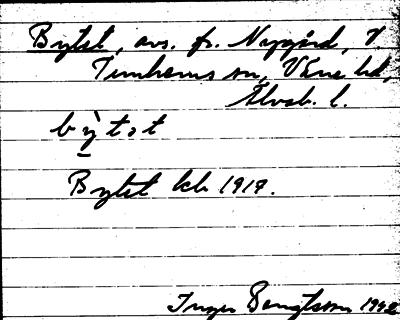 Bytet, avs. fr. Nygård, V
Tunhems sn, Väne hd,
Älvsb. l.
bỳtət
Bytet kb 1919.
Inger Bengtsson 1942